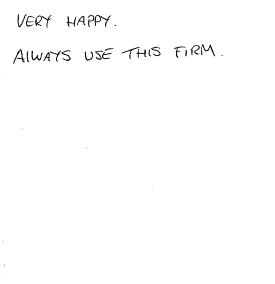 VERY HAPPY.
ALWAYS USE THIS FIRM.